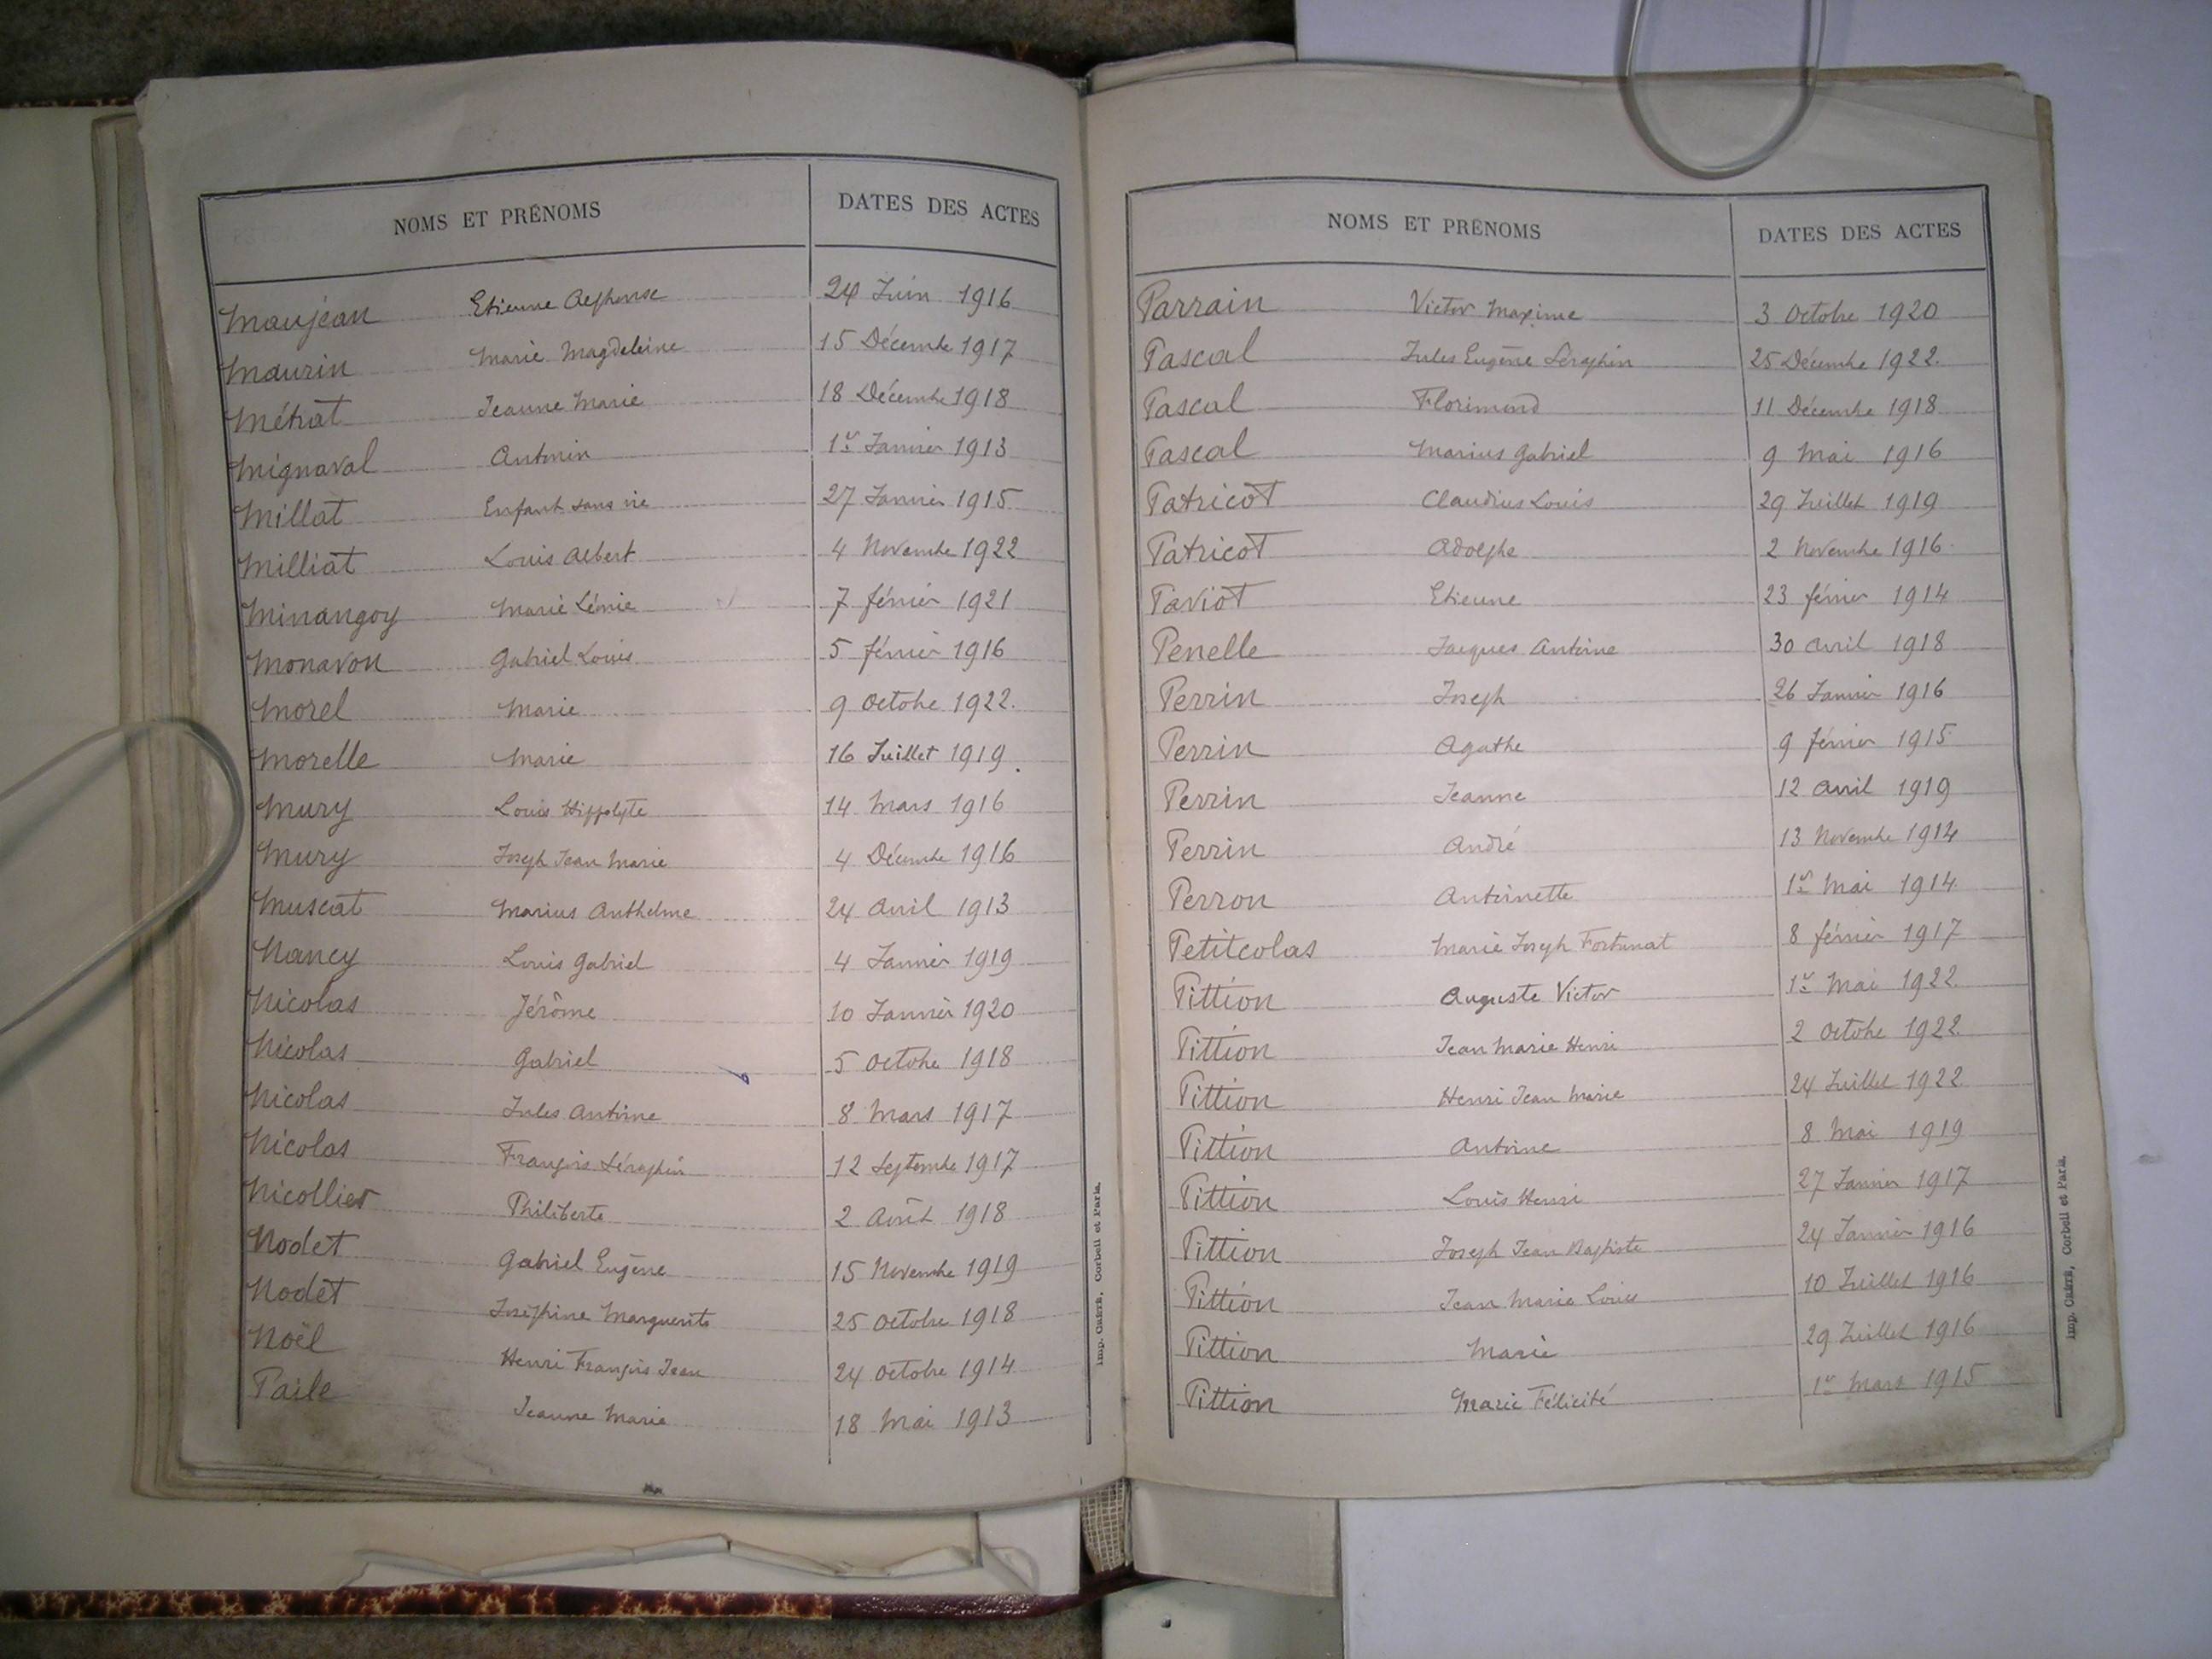 NOMS ET PRÉNOMS DATES DES ACTES
Maujean Etienne Alphonse 24 Juin 1916
Maurin Marie Magdeleine 15 Décembre 1917
Métrat Jeanne Marie 18 Décembre 1918
Mignaval Antonin 1er Janvier 1913
Millat Enfant sans vie 27 Janvier 1915
Milliat Louis Albert 4 Novembre 1922
Minangoy Marie Lénie 7 février 1921
Monavon Gabriel Louis 5 février 1916
Morel Marie 9 Octobre 1922.
Morelle Marie 16 Juillet 1919.
Mury Louis Hippolyte 14 Mars 1916
Mury Joseph Jean Marie 4 Décembre 1916
Muscat Marius Anthelme 24 Avril 1913
Nancy Louis Gabriel 4 Janvier 1919
Nicolas Jérôme 10 Janvier 1920
Nicolas Gabriel 5 Octobre 1918
Nicolas Jules Antoine 8 Mars 1917
Nicolas François Séraphin 12 Septembre 1917
Nicollier Philiberte 2 Août 1918
Nodet Gabriel Eugène 15 Novembre 1919
Nodet Joséphine Marguerite 25 Octobre 1918
Noël Henri François Jean 24 Octobre 1914
Paile Jeanne Marie 18 Mai 1913
Imp. Cafará, Corbeil et Paris.
NOMS ET PRÉNOMS DATES DES ACTES
Parrain Victor Maxime 3 Octobre 1920
Pascal Jules Eugène Séraphin 25 Décembre 1922.
Pascal Florimond 11 Décembre 1918
Pascal Marius Gabriel 9 Mai 1916
Patricot Claudius Louis 29 Juillet 1919
Patricot Adolphe 2 Novembre 1916
Paviot Etienne 23 février 1914
Penelle Jacques Antoine 30 Avril 1918
Perrin Joseph 26 Janvier 1916
Perrin Agathe 9 février 1915
Perrin Jeanne 12 Avril 1919
Perrin André 13 Novembre 1914
Perron Antoinette 1er Mai 1914
Petitcolas Marie Joseph Fortunat 8 février 1917
Pittion Auguste Victor 1er Mai 1922
Pittion Jean Marie Henri 2 Octobre 1922.
Pittion Henri Jean Marie 24 Juillet 1922
Pittion Antoine 8 Mai 1919
Pittion Louis Henri 27 Janvier 1917
Pittion Joseph Jean Baptiste 24 Janvier 1916
Pittion Jean Marie Louis 10 Juillet 1916
Pittion Marie 29 Juillet 1916
Pittion Marie Félicité 1er Mars 1915
Imp. Cafará, Corbeil et Paris.